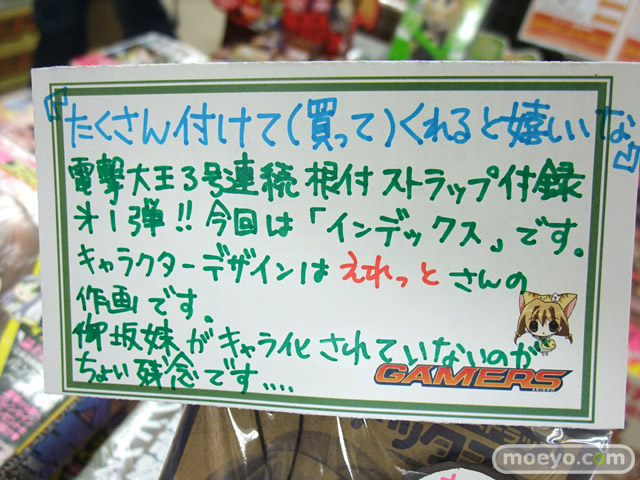 『たくさん付けて(買って)くれると嬉しいな』
電撃大王3号連続 根付ストラップ付録
オ1弾!! 今回は「インデックス」です。
キャラクターデザインは えれっと さんの
作画です。
御坂妹がキャラ化されていないのが
ちょい残念です....
GAMERS
moeyo.com